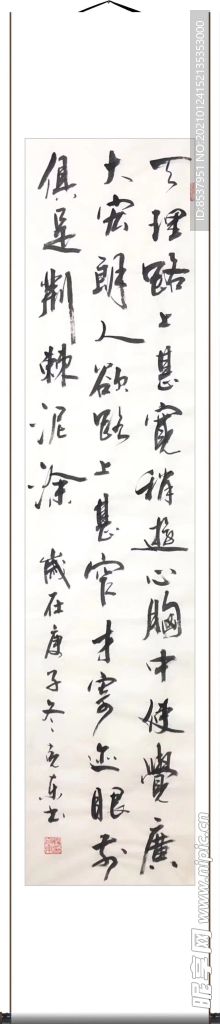 天理路上甚寬稍遊心胸中使覺廣
大宏朗人欲路上甚窄才寄迹眼前
俱是荆棘泥塗 歲在庚子冬
书
ID:8537951 NO:20210124152135353000
昵享网 www.nipic.cn